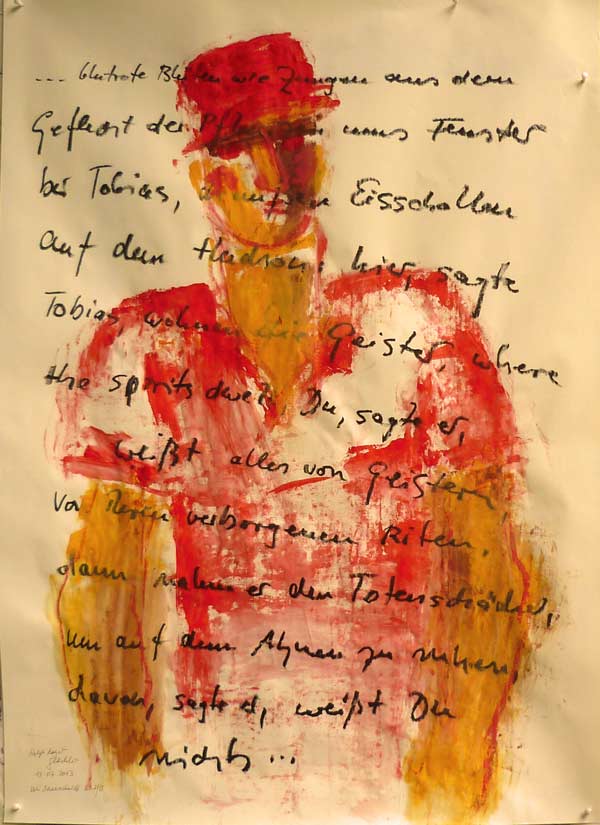 ... blutrote Blüten wie Zungen aus dem
der Pflanzen ums Fenster
bei Tobias, draußen Eisschollen
auf dem Hudson: hier, sagte
Tobias, wohnen die Geister, where
the spirits dwell, Du, sagte er,
weißt alles von Geistern,
von ihren verborgenen Riten,
dann nahm er den Totenschädel,
um auf dem Ahnen zu ruhen,
davon, sagte er, weißt Du
nichts ...